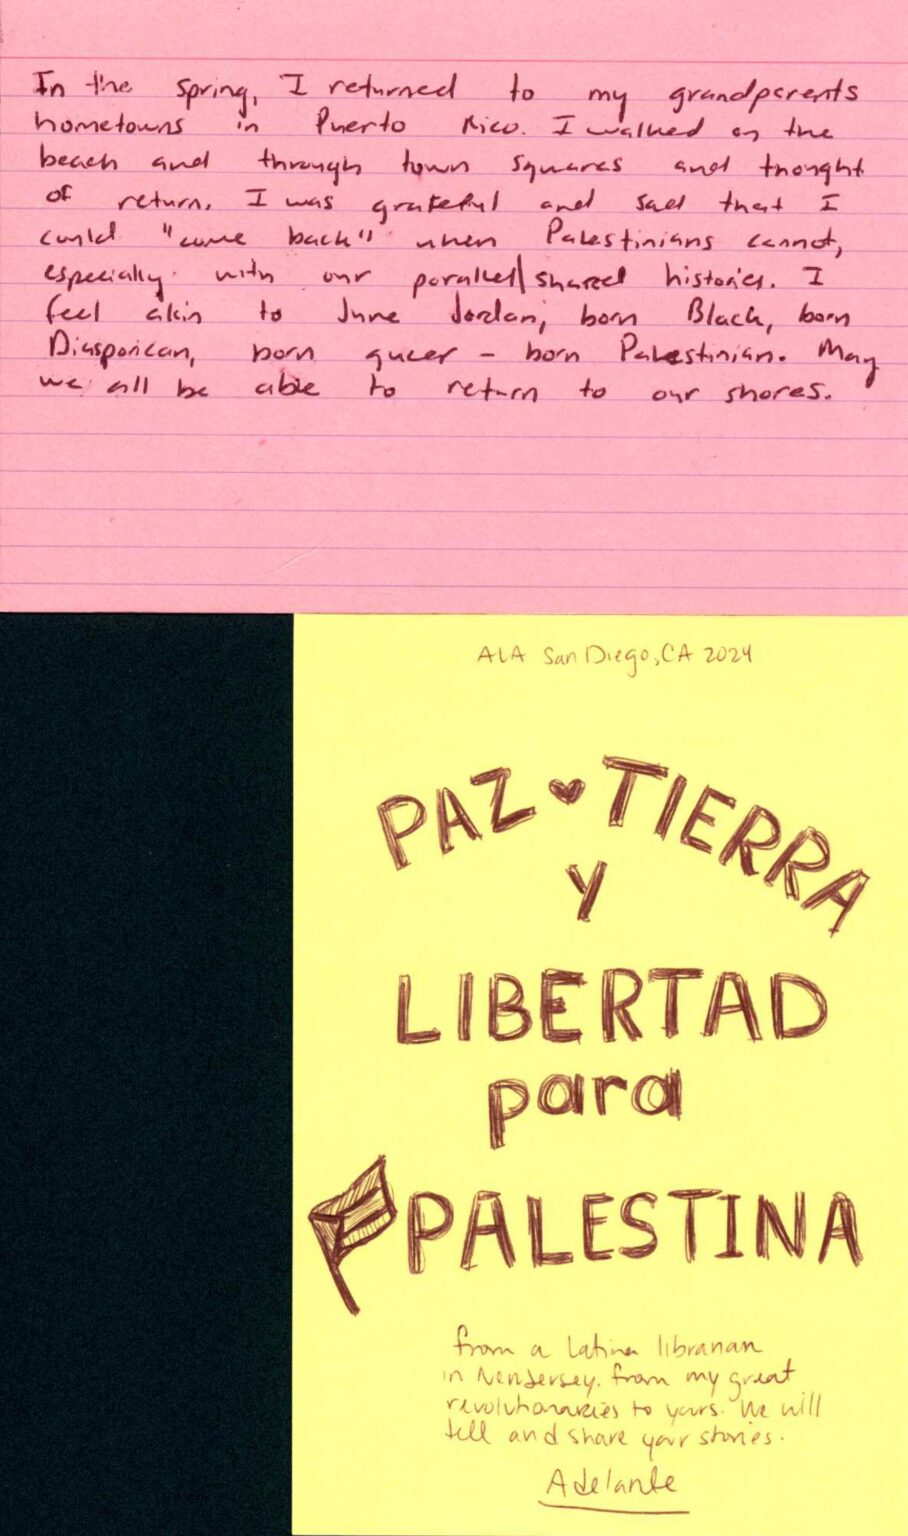 In the spring, I returned to my grandparents
hometowns in Puerto Rico. I walked on the
beach and through town squares and thought
of return. I was grateful and sad that I
could "come back" when Palestinians cannot,
especially with our parallel/shared histories. I
feel akin to June Jordan, born Black, born
Diasporican, born queer - born Palestinian. May
we all be able to return to our shores.
ALA San Diego, CA 2024
PAZ ♥ TIERRA
Y
LIBERTAD
para
PALESTINA
from a Latina librarian
in New Jersey. from my great
revolutionaries to yours. We will
tell and share your stories.
Adelante